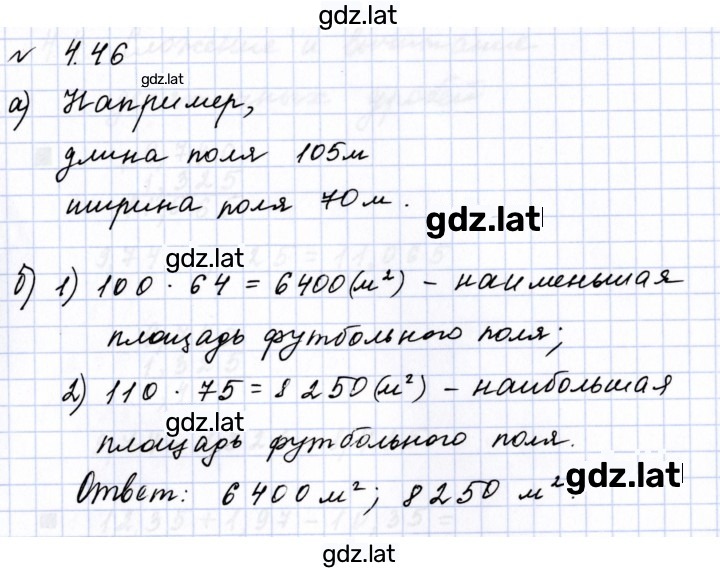 gdz.lat
№ 4.46
gdz.lat
а) Например,
длина поля 105м
ширина поля 70м.
gdz.lat
gdz.lat
б) 1) 100 · 64 = 6400(м²) – наименьшая
площадь футбольного поля;
2) 110 · 75 = 8250(м²) – наибольшая
gdz.lat
площадь футбольного поля.
Ответ: 6400 м²; 8250 м².
gdz.lat
gdz.lat